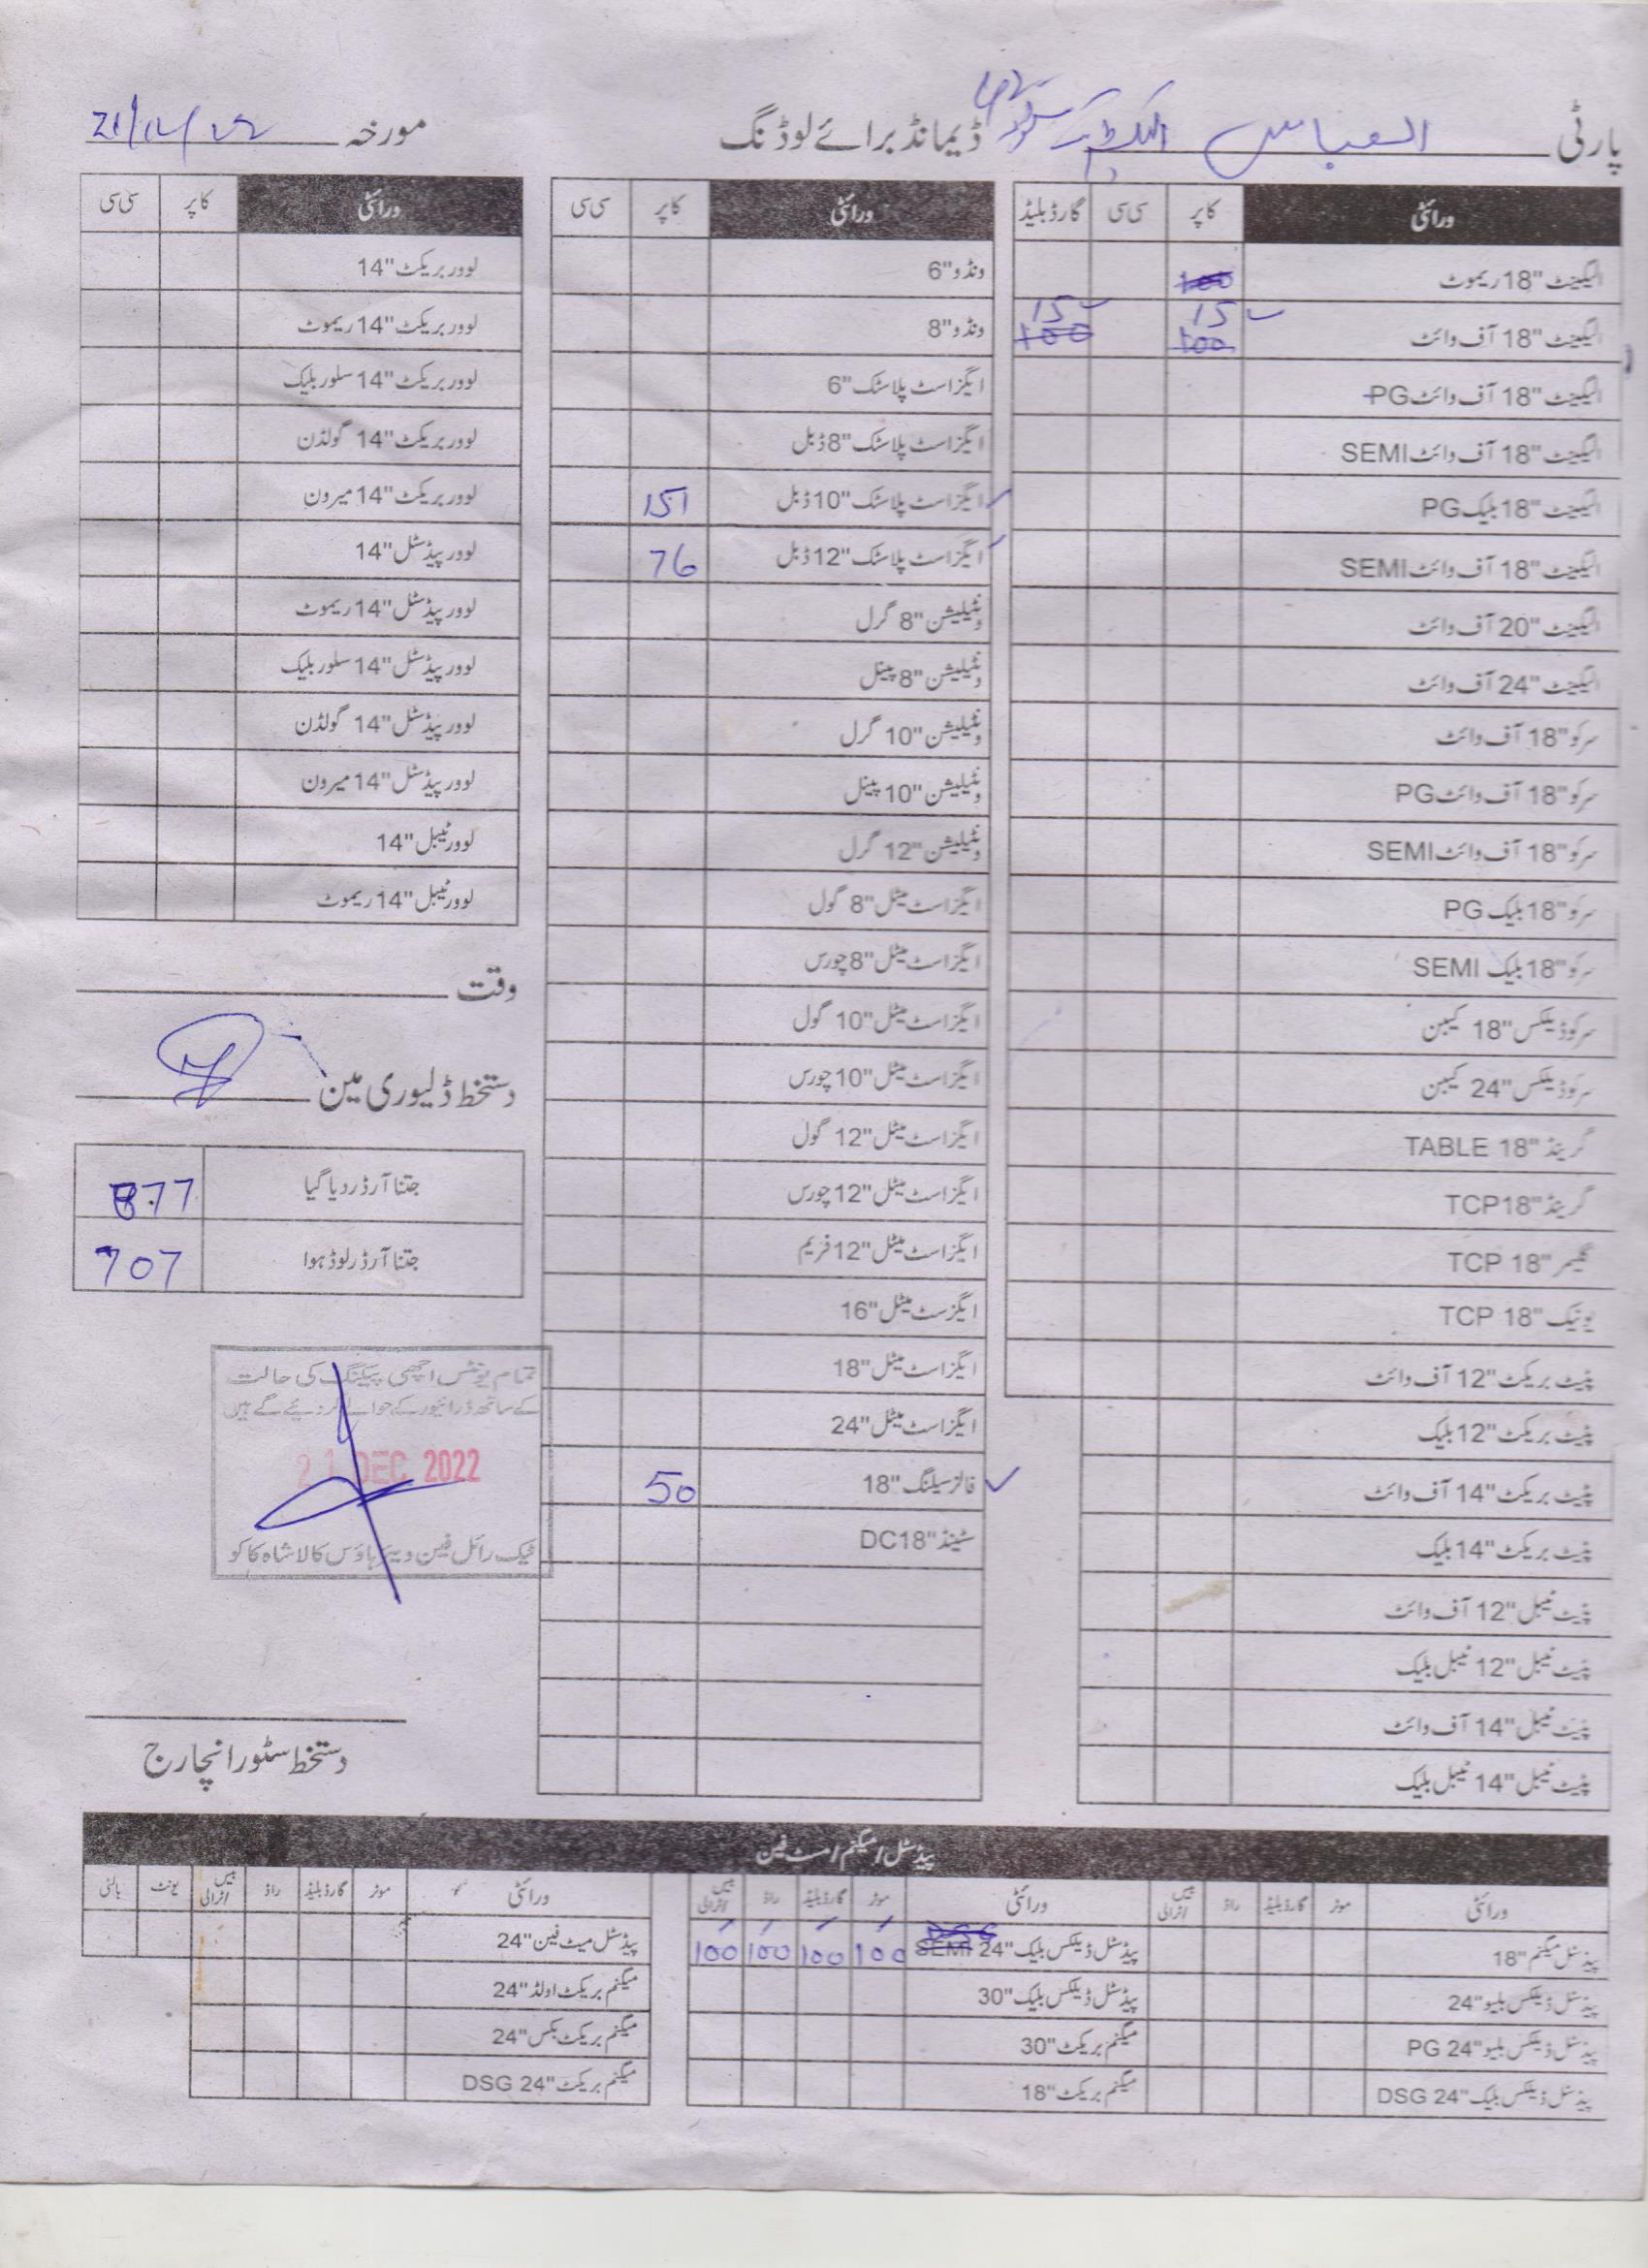 پارٹی العباس الیکٹرک سٹور
ڈیمانڈ برائے لوڈنگ
مورخہ 21/12/22
ورائٹی کاپر سی سی گارڈ بلیڈ
ایلیگینٹ "18 ریموٹ 100
ایلیگینٹ "18 آف وائٹ 15 100 15 100
ایلیگینٹ "18 آف وائٹ PG
ایلیگینٹ "18 آف وائٹ SEMI
ایلیگینٹ "18 بلیک PG
ایلیگینٹ "18 آف وائٹ SEMI
ایلیگینٹ "20 آف وائٹ
ایلیگینٹ "24 آف وائٹ
سرکو "18 آف وائٹ
سرکو "18 آف وائٹ PG
سرکو "18 آف وائٹ SEMI
سرکو "18 بلیک PG
سرکو "18 بلیک SEMI
سرکو ڈیلکس "18 کیبن
سرکو ڈیلکس "24 کیبن
گرینڈ "18 TABLE
گرینڈ "18 TCP
گلیمر "18 TCP
یونیک "18 TCP
پنیٹ بریکٹ "12 آف وائٹ
پنیٹ بریکٹ "12 بلیک
پنیٹ بریکٹ "14 آف وائٹ
پنیٹ بریکٹ "14 بلیک
پنیٹ ٹیبل "12 آف وائٹ
پنیٹ ٹیبل "12 ٹیبل بلیک
پنیٹ ٹیبل "14 آف وائٹ
پنیٹ ٹیبل "14 ٹیبل بلیک
ورائٹی کاپر سی سی
ونڈو "6
ونڈو "8
ایگزاسٹ پلاسٹک "6
ایگزاسٹ پلاسٹک "8 ڈبل
ایگزاسٹ پلاسٹک "10 ڈبل 151
ایگزاسٹ پلاسٹک "12 ڈبل 76
ونٹیلیشن "8 گرل
ونٹیلیشن "8 پینل
ونٹیلیشن "10 گرل
ونٹیلیشن "10 پینل
ونٹیلیشن "12 گرل
ایگزاسٹ میٹل "8 گول
ایگزاسٹ میٹل "8 چورس
ایگزاسٹ میٹل "10 گول
ایگزاسٹ میٹل "10 چورس
ایگزاسٹ میٹل "12 گول
ایگزاسٹ میٹل "12 چورس
ایگزاسٹ میٹل "12 فریم
ایگزسٹ میٹل "16
ایگزاسٹ میٹل "18
ایگزاسٹ میٹل "24
فالز سیلنگ "18 50
سٹینڈ "18 DC
ورائٹی کاپر سی سی
لوور بریکٹ "14
لوور بریکٹ "14 ریموٹ
لوور بریکٹ "14 سلور بلیک
لوور بریکٹ "14 گولڈن
لوور بریکٹ "14 میرون
لوور پیڈسٹل "14
لوور پیڈسٹل "14 ریموٹ
لوور پیڈسٹل "14 سلور بلیک
لوور پیڈسٹل "14 گولڈن
لوور پیڈسٹل "14 میرون
لوور ٹیبل "14
لوور ٹیبل "14 ریموٹ
وقت
دستخط ڈلیوری مین
جتنا آرڈر دیا گیا 877
جتنا آرڈر لوڈ ہوا 707
تمام یونٹس اچھی پیکنگ کی حالت
کے ساتھ ڈرائیور کے حوالے کر دیئے گے ہیں
21 DEC 2022
ٹیک رائل فین ویئر ہاؤس کالا شاہ کاکو
دستخط سٹور انچارج
پیڈسٹل / میگنم / مسٹ فین
ورائٹی موٹر گارڈ بلیڈ راڈ بیس/ٹرالی
پیڈسٹل میگنم "18
پیڈسٹل ڈیلکس بلیو "24
پیڈسٹل ڈیلکس بلیو "24 PG
پیڈسٹل ڈیلکس بلیک "24 DSG
ورائٹی موٹر گارڈ بلیڈ راڈ بیس/ٹرالی
پیڈسٹل ڈیلکس بلیک "24 SEMI DSG 100 100 100 100
پیڈسٹل ڈیلکس بلیک "30
میگنم بریکٹ "30
میگنم بریکٹ "18
ورائٹی موٹر گارڈ بلیڈ راڈ بیس/ٹرالی یونٹ بالٹی
پیڈسٹل میٹ فین "24
میگنم بریکٹ اولڈ "24
میگنم بریکٹ بکس "24
میگنم بریکٹ "24 DSG